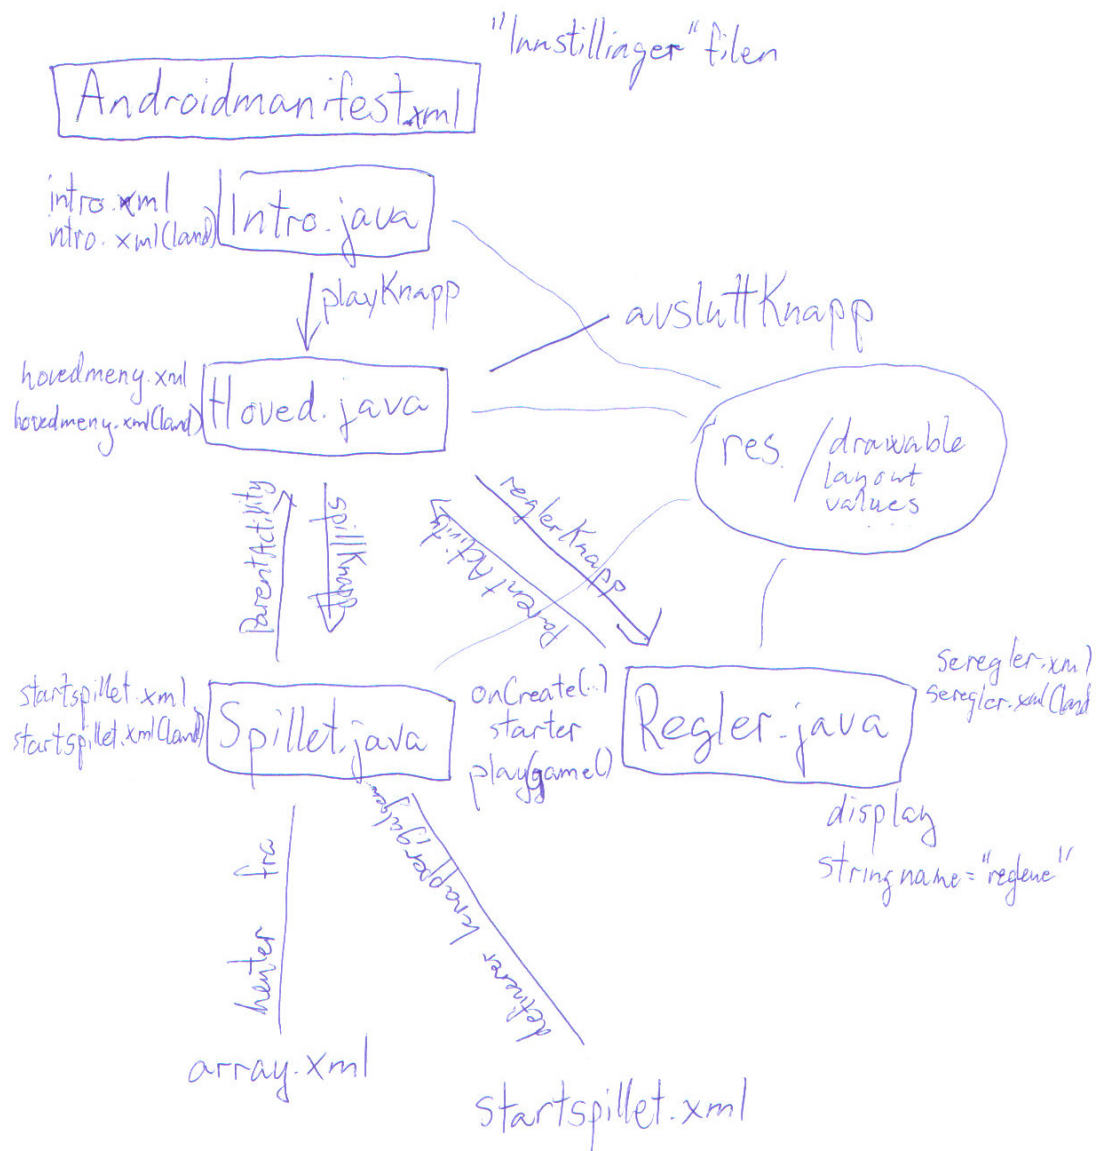 "Innstillinger" filen
Androidmanifest.xml
intro.xml
ntro.xml(land)
Intro.java
playKnapp
avsluttKnapp
hovedmeny.xml
hovedmeny.xml(land)
Hoved.java
res. / drawable
layout
values
ParentActivity
spillKnapp
reglerKnapp
ParentActivity
startspillet.xml
startspillet.xml(land)
Spillet.java
onCreate(..)
starter
play(game()
Regler.java
seregler.xml
seregler.xml(land
display
string name="reglene"
henter fra
definerer knapper, galgen
array.xml
startspillet.xml